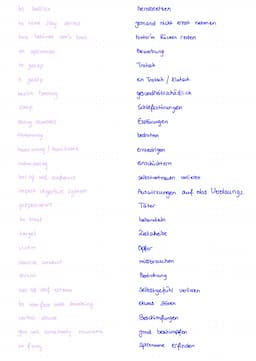 to belittle herabsetzen
to not take serious jemand nicht ernst nehmen
behind one's back hinter'm Rücken reden
Bewertung
to gossip Tratsch
a gossip ein Tratsch / Klatsch
gesundheitsschädlich
sleep Schlafstörungen
eating disorders Essstörungen
threatening bedrohen
humiliating / humiliate erniedrigen
intimidating einschüchtern
loss of self confidence Selbstvertrauen verlieren
impact digestive system Auswirkungen auf das
perpetrator Täter
to treat behandeln
target Zielscheibe
victim Opfer
missbrauchen
Bedrohung
loss of self esteem Selbstgefühl verlieren
to interfere with something etwas stören
verbal abuse Beschimpfungen
somebody jmd beschimpfen
Spitznamen erfinden